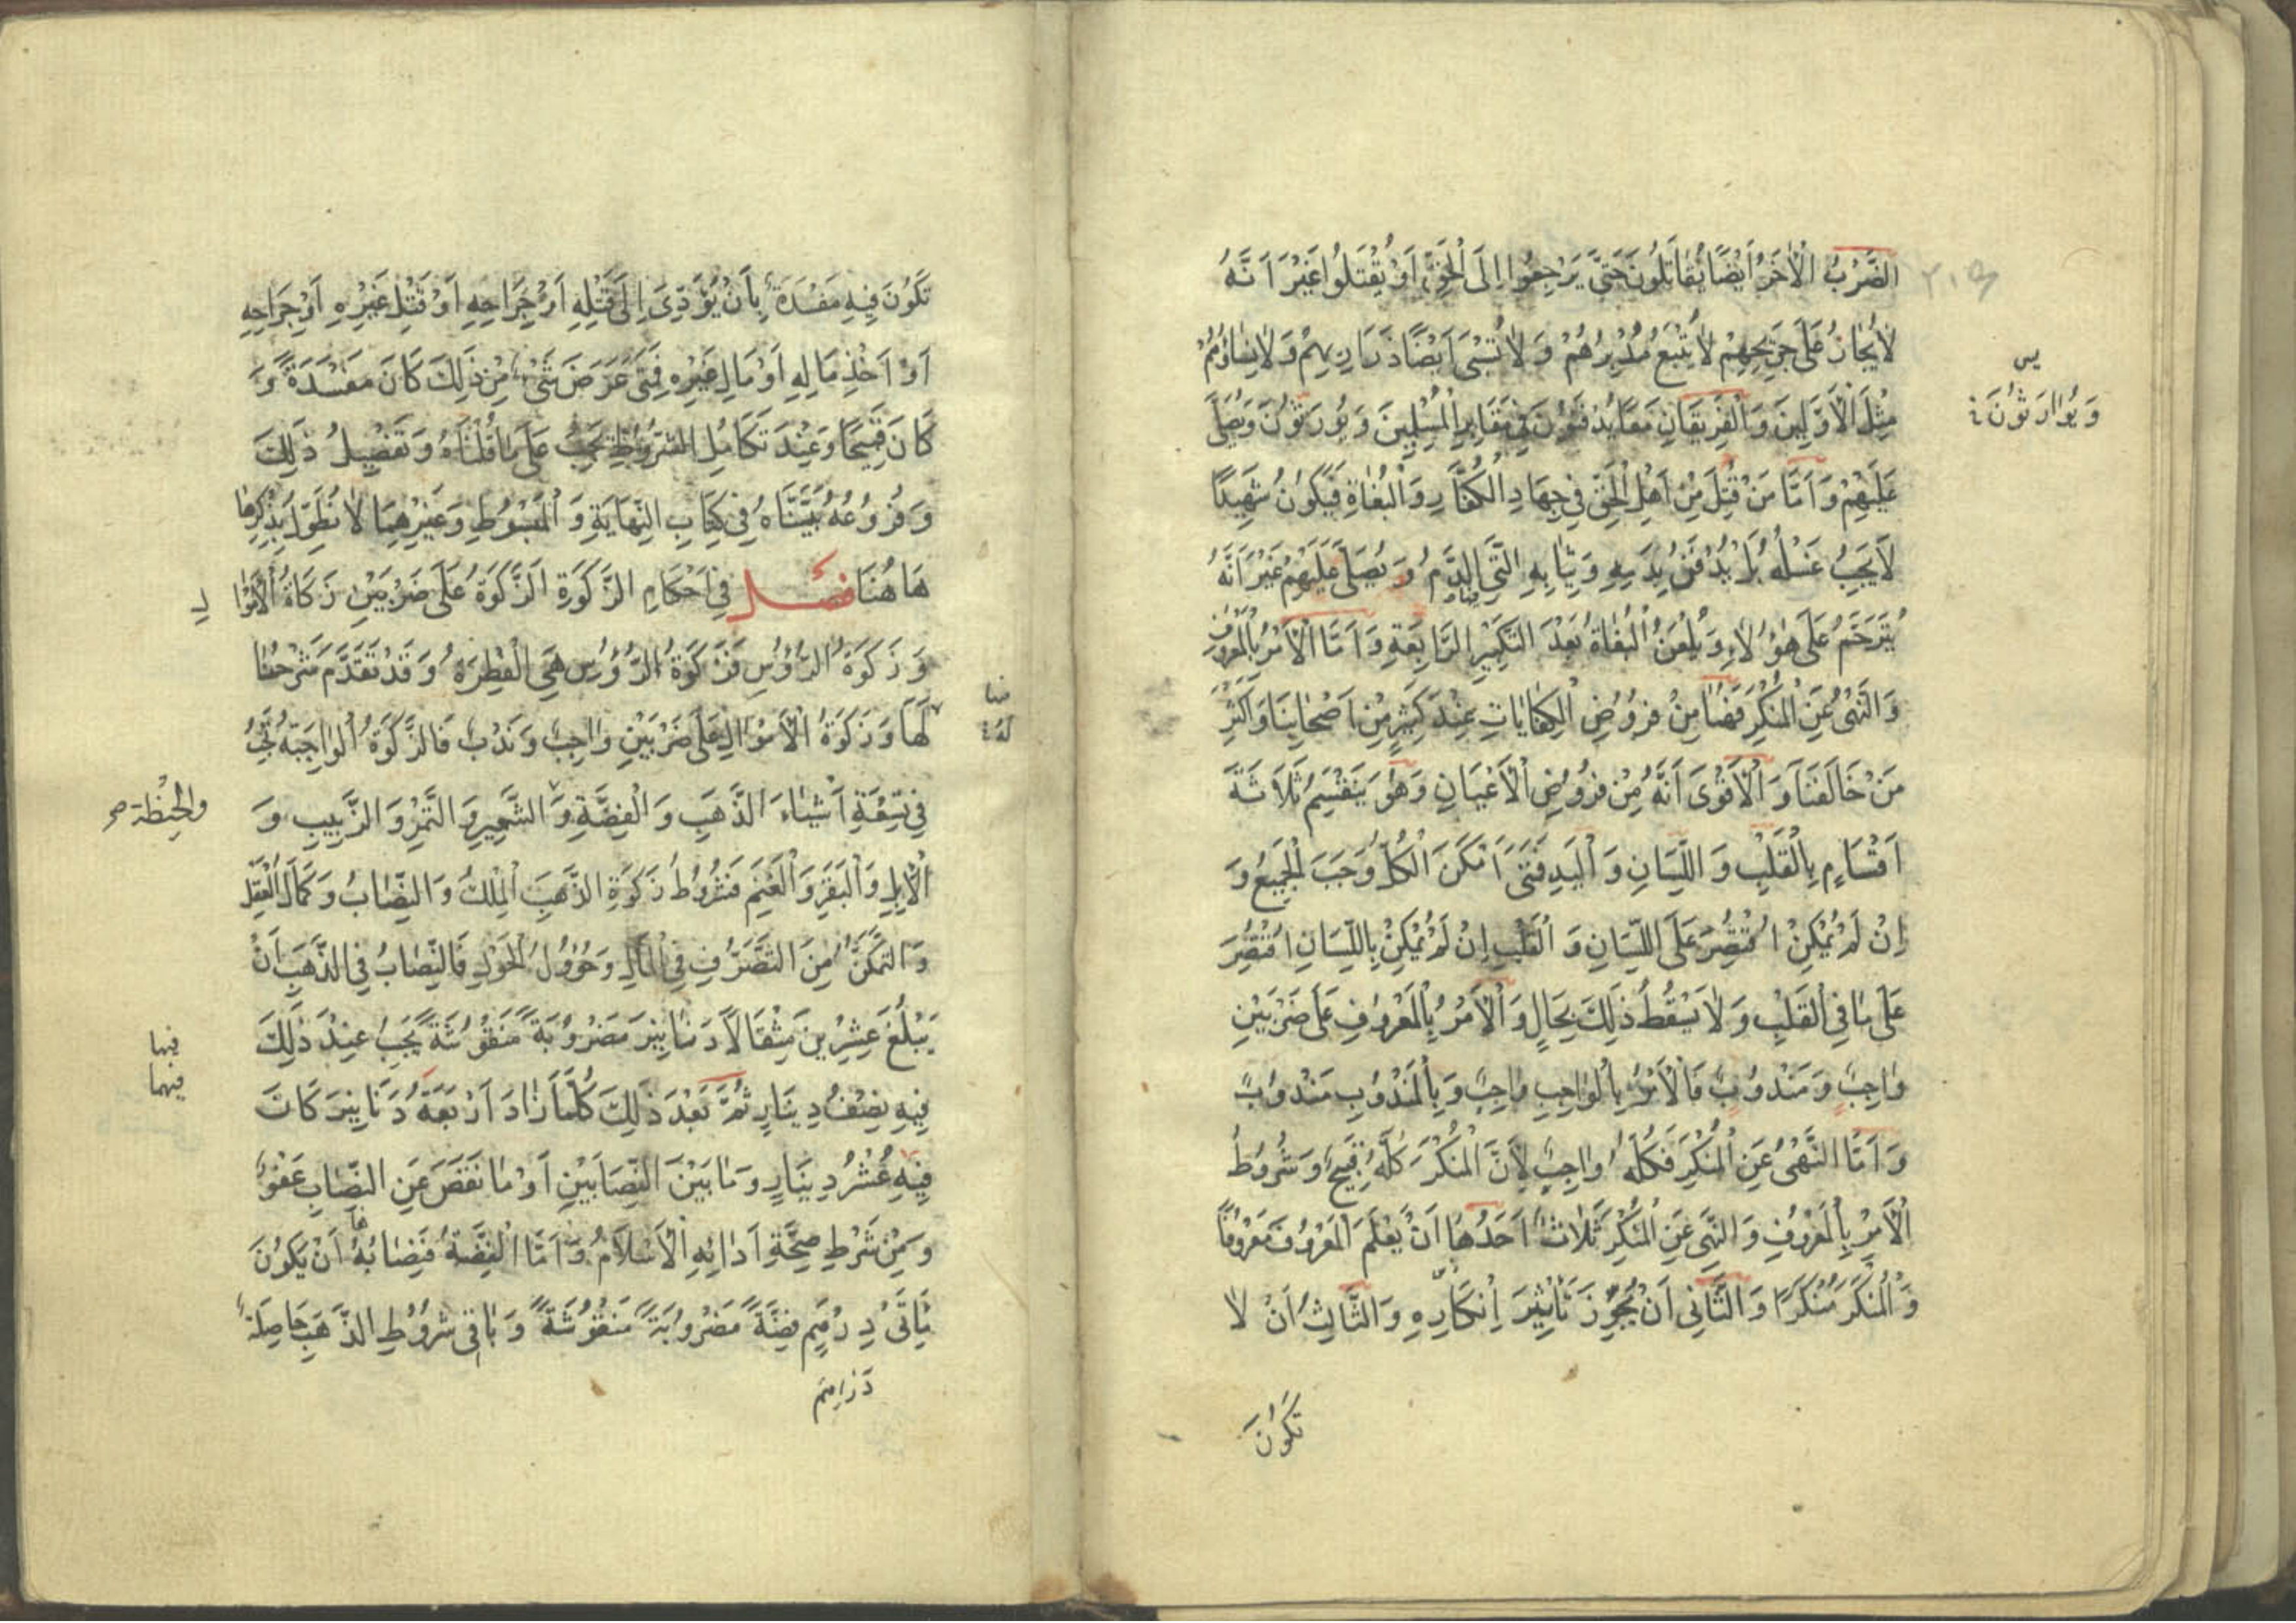 الضَّرْبُ الْآخَرُ أَيْضًا يُقَاتَلُونَ حَتَّى يَرْجِعُوا إِلَى الْحَقِّ أَوْ يُقْتَلُوا غَيْرَ أَنَّهُ
لَا يُجَازُ عَلَى جَرِيحِهِمْ لَا يُتْبَعُ مُدْبِرُهُمْ وَلَا تُسْبَى أَيْضًا ذَرَارِيهِمْ وَلَا نِسَاؤُهُمْ
مِثْلَ الْأَوَّلِينَ وَالْفَرِيقَانِ مَعًا يُدْفَنُونَ فِي مَقَابِرِ الْمُسْلِمِينَ وَيُوَرَثُونَ وَيُصَلَّى
وَيُوَارَثُونَ
عَلَيْهِمْ وَأَمَّا مَنْ قُتِلَ مِنْ أَهْلِ الْحَقِّ فِي جِهَادِ الْكُفَّارِ وَالْبُغَاةِ فَيَكُونُ شَهِيدًا
لَا يَجِبُ غَسْلُهُ بَلْ يُدْفَنُ بِدَمِهِ وَثِيَابِهِ الَّتِي الدَّمُ وَيُصَلَّى عَلَيْهِمْ غَيْرَ أَنَّهُ
يُتَرَحَّمُ عَلَى هَؤُلَاءِ وَيُلْعَنُ الْبُغَاةُ بَعْدَ التَّكْبِيرِ الرَّابِعَةِ وَأَمَّا الْأَمْرُ بِالْمَعْرُوفِ
وَالنَّهْيُ عَنِ الْمُنْكَرِ فَهُمَا مِنْ فُرُوضِ الْكِفَايَاتِ عِنْدَ كَثِيرٍ مِنْ أَصْحَابِنَا وَأَكْثَرِ
مَنْ خَالَفَنَا وَالْأَقْوَى أَنَّهُ مِنْ فُرُوضِ الْأَعْيَانِ وَهُوَ يَنْقَسِمُ ثَلَاثَةَ
أَقْسَامٍ بِالْقَلْبِ وَاللِّسَانِ وَالْيَدِ فَمَتَى أَمْكَنَ الْكُلُّ وَجَبَ الْجَمِيعُ وَ
إِنْ لَمْ يُمْكِنْ اقْتُصِرَ عَلَى اللِّسَانِ وَالْقَلْبِ إِنْ لَمْ يُمْكِنْ بِاللِّسَانِ اقْتُصِرَ
عَلَى مَا فِي الْقَلْبِ وَلَا يَسْقُطُ ذَلِكَ بِحَالٍ وَالْأَمْرُ بِالْمَعْرُوفِ عَلَى ضَرْبَيْنِ
وَاجِبٌ وَمَنْدُوبٌ فَالْأَمْرُ بِالْوَاجِبِ وَاجِبٌ وَبِالْمَنْدُوبِ مَنْدُوبٌ
وَأَمَّا النَّهْيُ عَنِ الْمُنْكَرِ فَكُلُّهُ وَاجِبٌ لِأَنَّ الْمُنْكَرَ كُلَّهُ قَبِيحٌ وَشُرُوطُ
الْأَمْرِ بِالْمَعْرُوفِ وَالنَّهْيِ عَنِ الْمُنْكَرِ ثَلَاثٌ أَحَدُهَا أَنْ يَعْلَمَ الْمَعْرُوفَ مَعْرُوفًا
وَالْمُنْكَرَ مُنْكَرًا وَالثَّانِي أَنْ يُجَوِّزَ تَأْثِيرَ إِنْكَارِهِ وَالثَّالِثُ أَنْ لَا
تَكُونَ
تَكُونَ فِيهِ مَفْسَدَةٌ بِأَنْ يُؤَدِّيَ إِلَى قَتْلِهِ أَوْ جَرَاحِهِ أَوْ قَتْلِ غَيْرِهِ أَوْ جَرَاحِهِ
أَوْ أَخْذِ مَالِهِ أَوْ مَالِ غَيْرِهِ فَمَتَى عَرَضَ شَيْءٌ مِنْ ذَلِكَ كَانَ مَفْسَدَةً وَ
كَانَ قَبِيحًا وَعِنْدَ تَكَامُلِ الشُّرُوطِ يَجِبُ عَلَى مَا قُلْنَاهُ وَتَفْصِيلُ ذَلِكَ
وَفُرُوعُهُ بَيَّنَّاهُ فِي كِتَابِ النِّهَايَةِ وَالْمَبْسُوطِ وَغَيْرِهِمَا لَا نُطَوِّلُ بِذِكْرِهَا
هَاهُنَا فصل فِي أَحْكَامِ الزَّكَوةِ الزَّكَوةُ عَلَى ضَرْبَيْنِ زَكَاةُ الْأَمْوَا لِ
وَزَكَوةُ الرُّؤُسِ فَزَكَوةُ الرُّؤُسِ هِيَ الْفِطْرَةُ وَقَدْ تَقَدَّمَ شَرْحُنَا
لَهَا وَزَكَوةُ الْأَمْوَالِ عَلَى ضَرْبَيْنِ وَاجِبٌ وَنَدْبٌ فَالزَّكَوةُ الْوَاجِبَةُ تَجِبُ
فِي تِسْعَةِ أَشْيَاءَ الذَّهَبِ وَالْفِضَّةِ وَالشَّعِيرِ وَالتَّمْرِ وَالزَّبِيبِ وَ
وَالْحِنْطَةِ صح
الْإِبِلِ وَالْبَقَرِ وَالْغَنَمِ فَشُرُوطُ زَكَوةِ الذَّهَبِ الْمِلْكُ وَالنِّصَابُ وَكَمَالُ الْعَقْلِ
وَالتَّمَكُّنُ مِنَ التَّصَرُّفِ فِي الْمَالِ وَحُؤُولُ الْحَوْلِ فَالنِّصَابُ فِي الذَّهَبِ أَنْ
يَبْلُغَ عِشْرِينَ مِثْقَالًا دَنَانِيرَ مَضْرُوبَةً مَنْقُوشَةً يَجِبُ عِنْدَ ذَلِكَ
فيها
فيهما
فِيهِ نِصْفُ دِينَارٍ ثُمَّ بَعْدَ ذَلِكَ كُلَّمَا زَادَ أَرْبَعَةُ دَنَانِيرَ كَانَ
فِيهِ عُشْرُ دِينَارٍ وَمَا بَيْنَ النِّصَابَيْنِ أَوْ مَا نَقَصَ عَنِ النِّصَابِ عَفْوٌ
وَمِنْ شَرْطِ صِحَّةِ أَدَائِهِ الْإِسْلَامُ وَأَمَّا الْفِضَّةُ فَنِصَابُهُ أَنْ يَكُونَ
مَاتَى دِرْهَمٍ فِضَّةً مَضْرُوبَةً مَنْقُوشَةً وَبَاقِي شُرُوطِ الذَّهَبِ حَاصِلَةً
دَرَاهِمَ